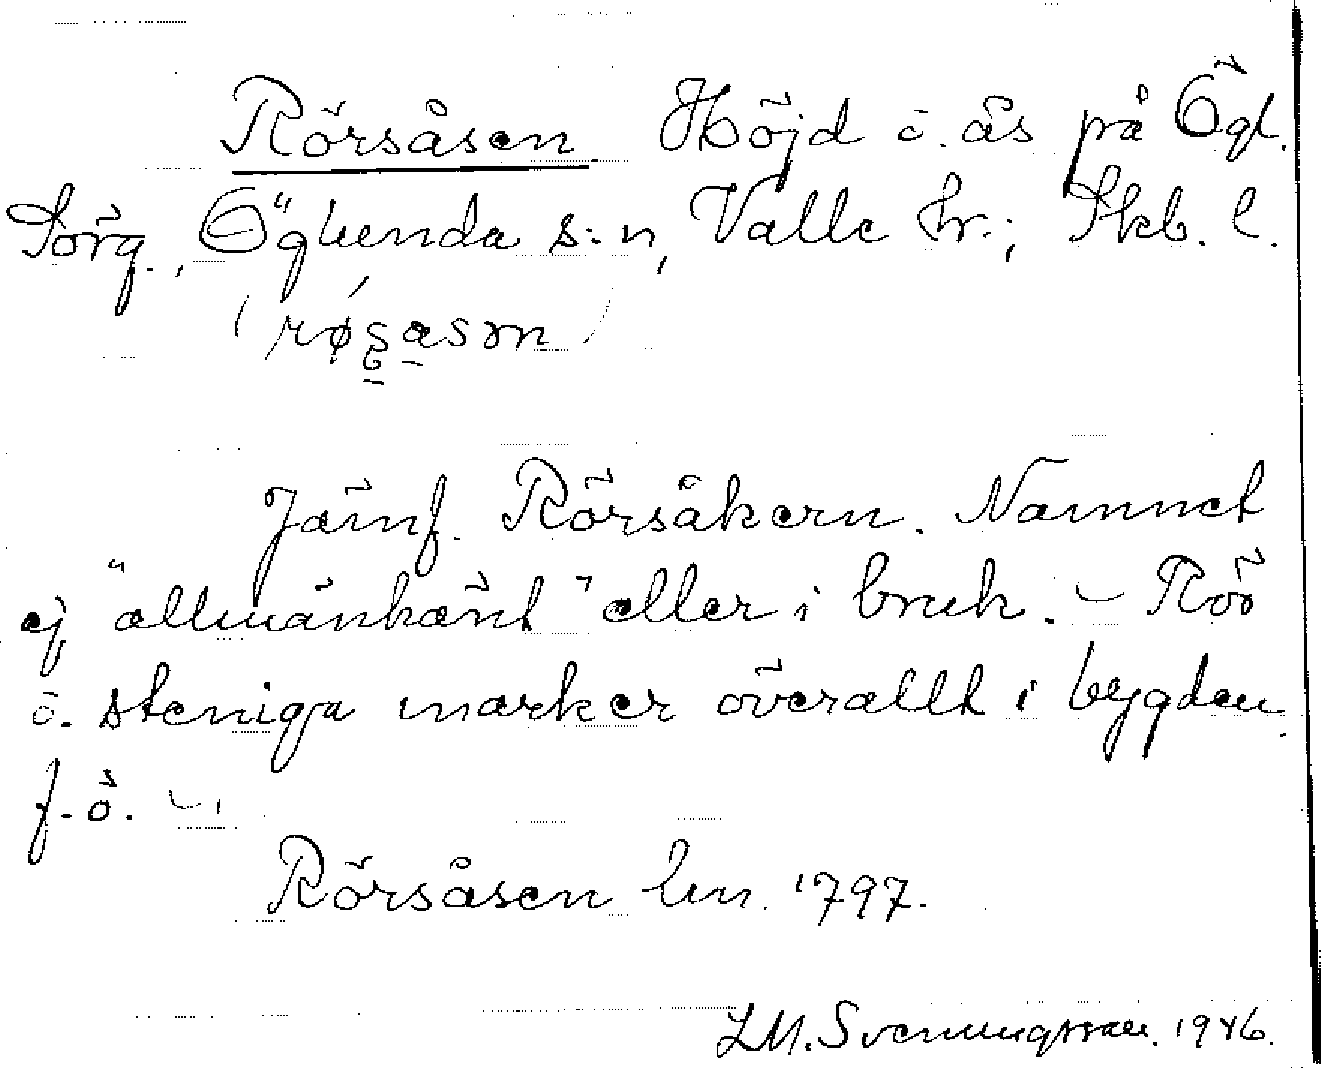 Rörsåsen Höjd o. ås på Ögl.
Torg., Öglunda s:n, Valle hr.; Skb. l.
Jämf. Rörsåkern. Namnet
ej "allmänkänt" eller i bruk. – Rör
o. steniga marker överallt i bygden
f.ö. –
Rörsåsen lm. 1797.
LM. Svenungsson. 1946.